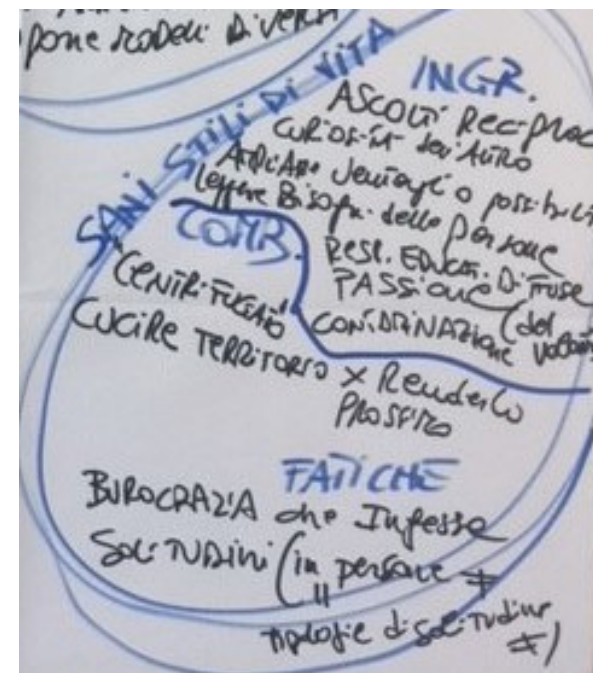 pone modelli diversi
SANI STILI DI VITA
INGR.
ASCOLTI Reciproc
CURIOSITÀ dell'Altro
Ampliare ventagli o possibili
leggere Bisogni delle persone
RESP. EDUCAT. DIFFUSE
PASSIONE (del
CONTAMINAZIONE
COMB.
CENTRIFUGATO
CUCIRE TERRITORIO x Renderlo
PROSSIMO
FATICHE
BUROCRAZIA che Ingessa
SOLITUDINI (in persone ≠
" tipologie di solitudine
≠)